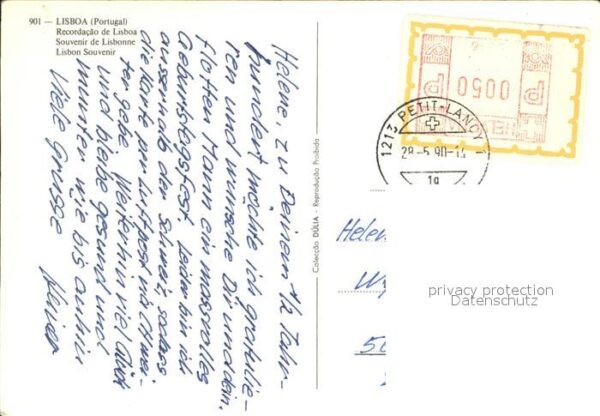 901 — LISBOA (Portugal)
Recordação de Lisboa
Souvenir de Lisbonne
Lisbon Souvenir
Helene, zu Deinem 1/2 Jahr-
hundert möchte ich gratulie-
ren und wünsche Dir und dein.
flotten Mann ein
Geburtstagsfest. Leider bin ich
ausserhalb der Schweiz, sodass
die Karte per Luftpost
Weiterhin viel Glück
und bleibe gesund und
munter wie bis anhin
Viele Grüsse
Colecção DÚLIA - Reprodução Proibida
0050
1213 PETIT-LANCY
28-5.90-1
1g
Helen
Wy
50
privacy protection
Datenschutz